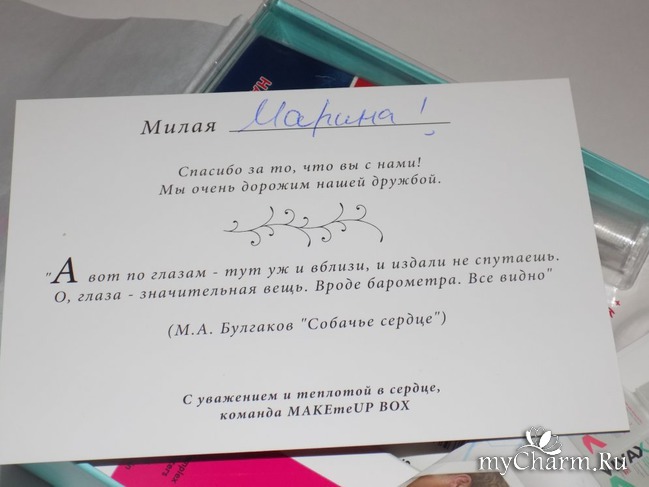 Милая Марина!
Спасибо за то, что вы с нами!
Мы очень дорожим нашей дружбой.
"А вот по глазам - тут уж и вблизи, и издали не спутаешь.
О, глаза - значительная вещь. Вроде барометра. Все видно"
(М.А. Булгаков "Собачье сердце")
С уважением и теплотой в сердце,
команда MAKEmeUP BOX
myCharm.Ru